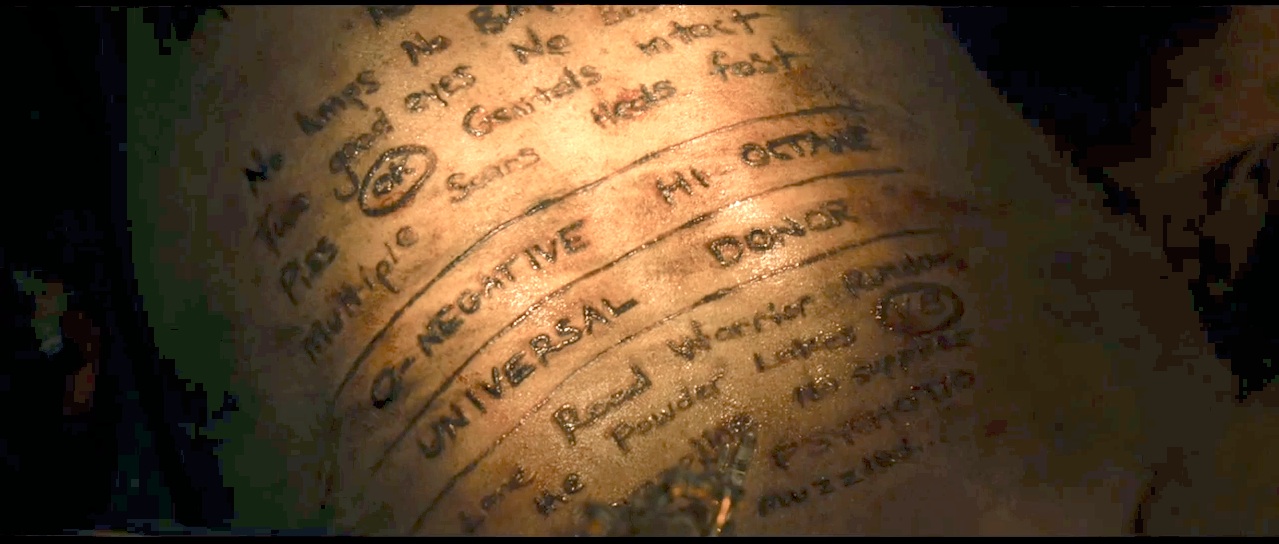 No lumps No
Two good eyes No
Piss OK Genitals intact
Multiple Scars Heals fast
O-NEGATIVE HI-OCTANE
UNIVERSAL DONOR
Lone Road Warrior Rundown
the Powder Lakes V8
No supplies
PSYCHOTIC
muzzled...